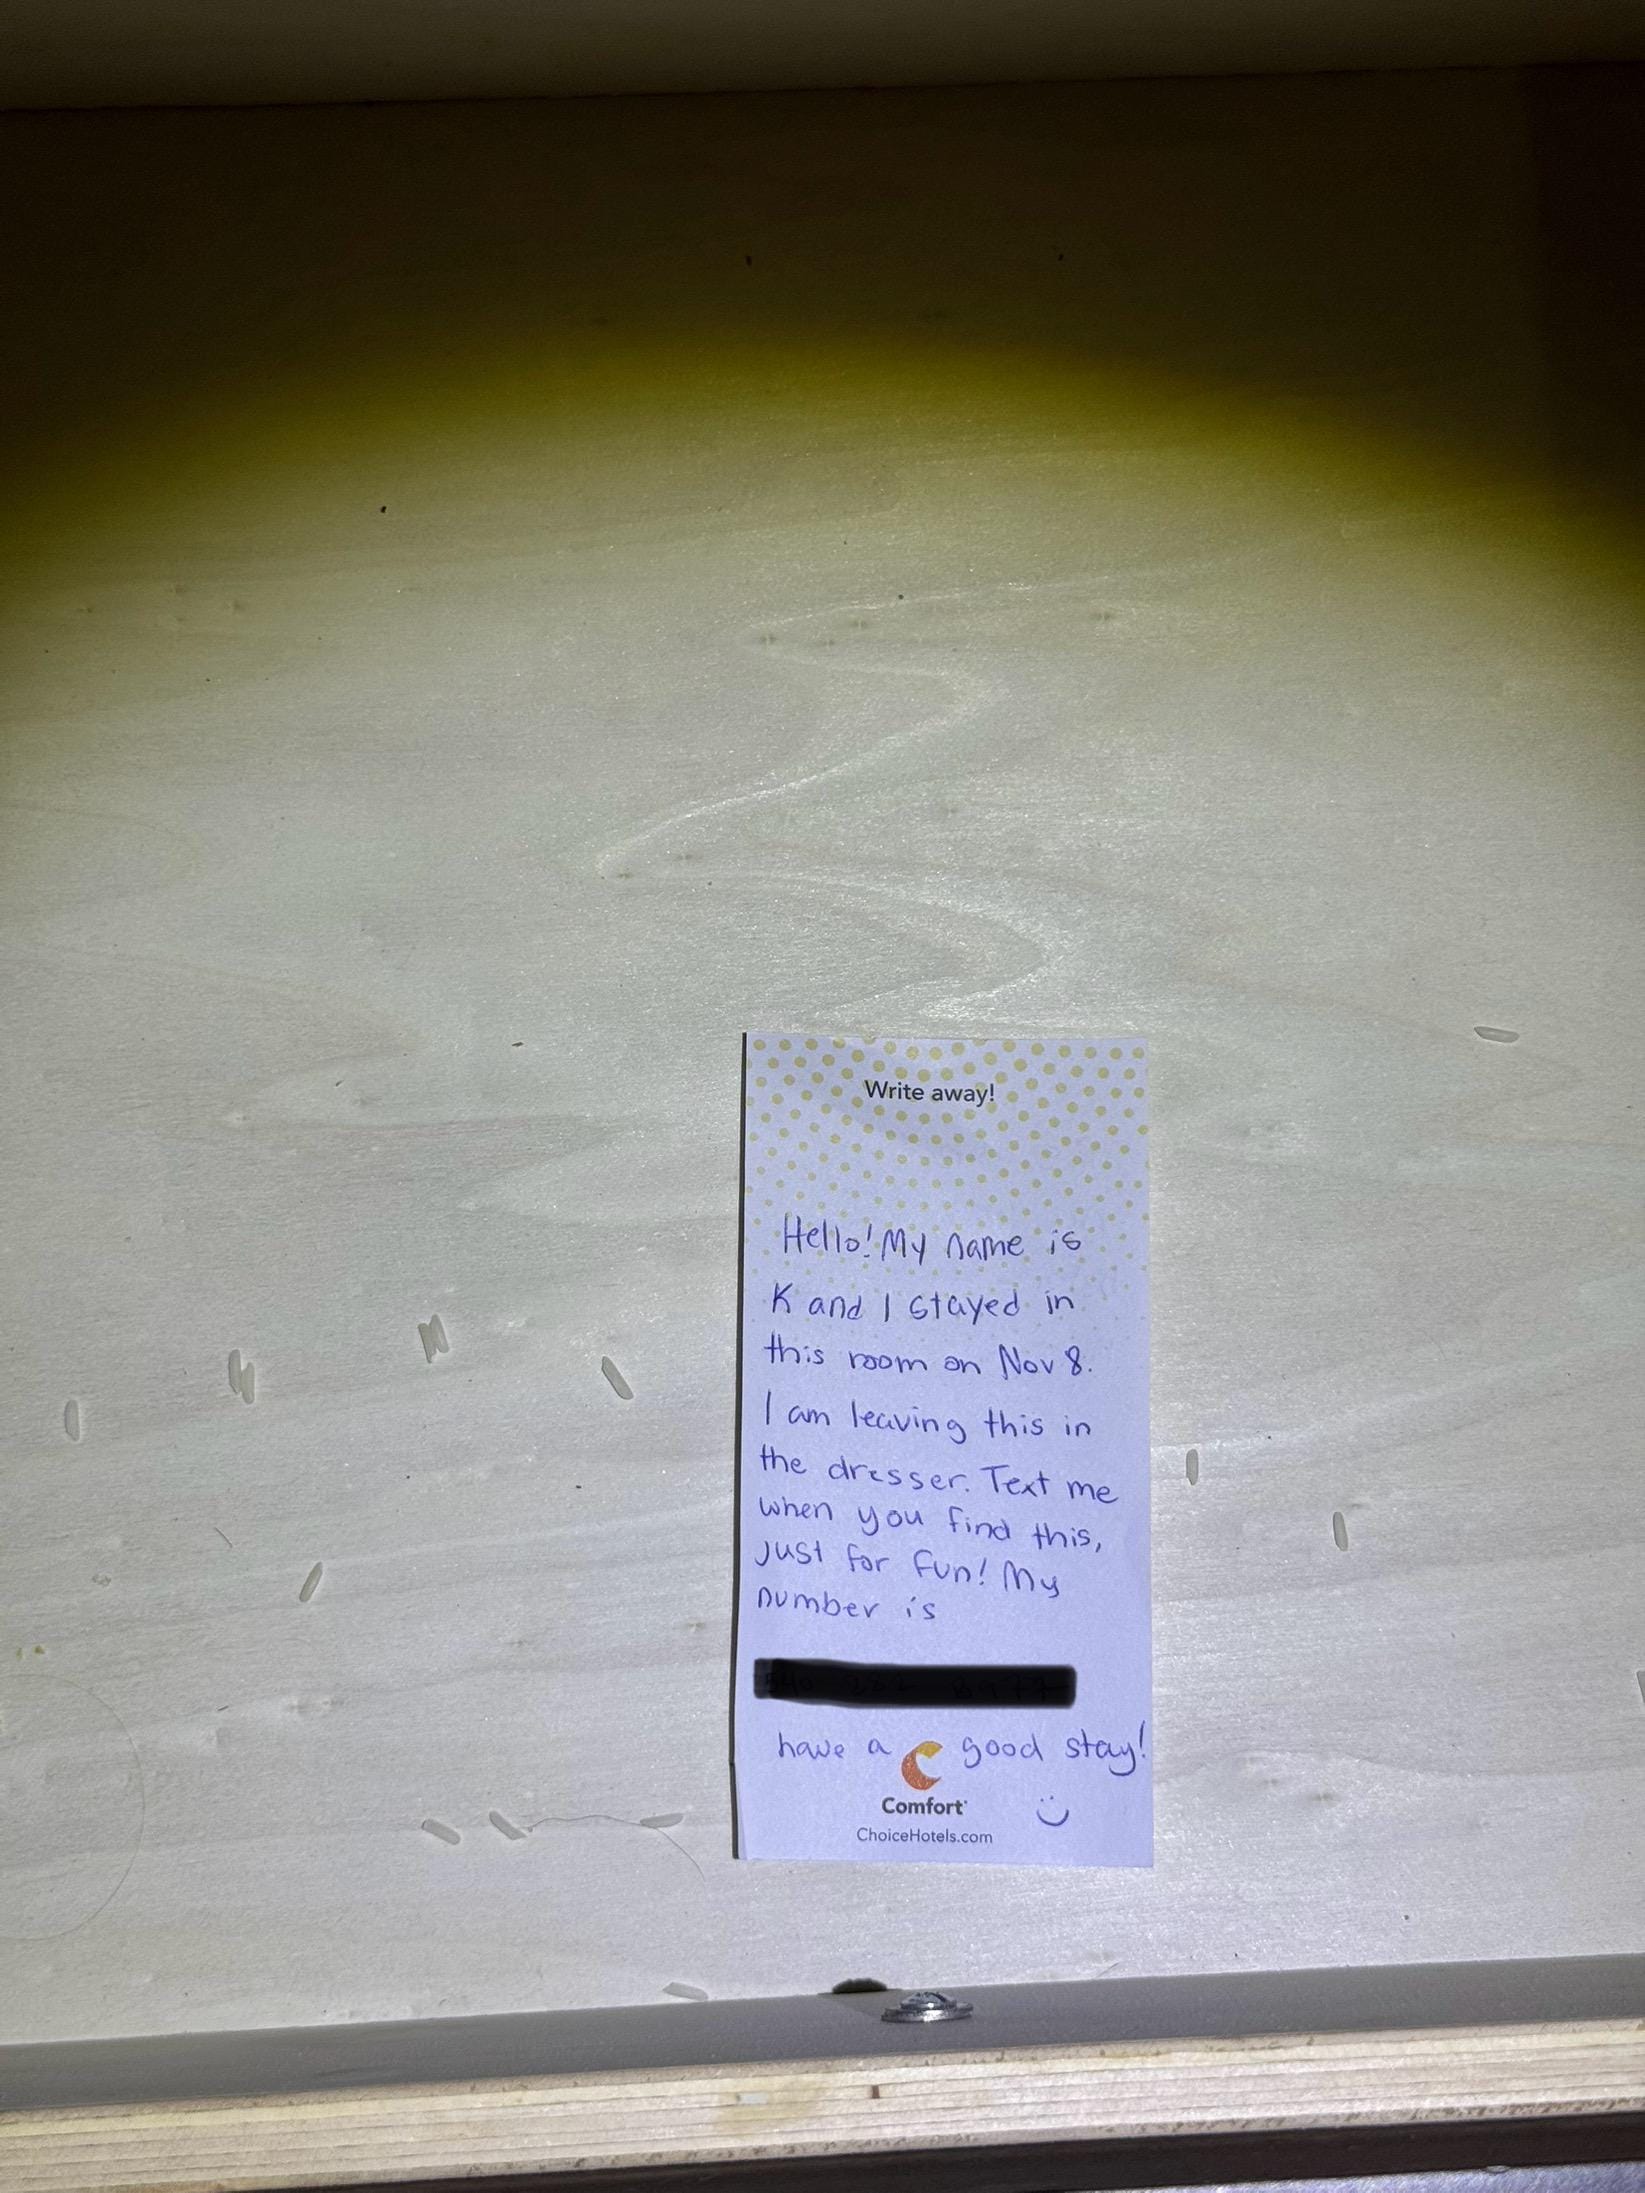 Write away!
Hello! My name is
K and I stayed in
this room on Nov 8.
I am leaving this in
the dresser. Text me
when you find this,
just for fun! My
number is
have a good stay!
Comfort
ChoiceHotels.com